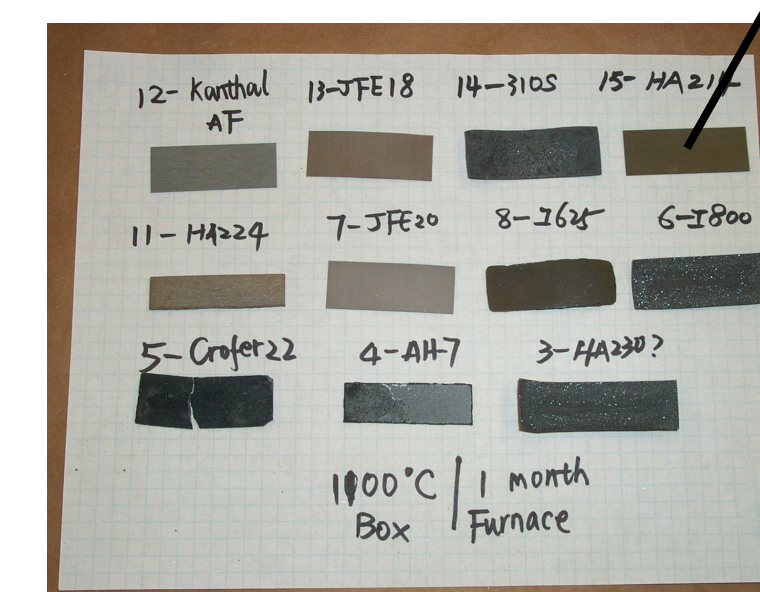 12-Kanthal AF
13-JFE18
14-310S
15-HA214
11-HA224
7-JFE20
8-I625
6-I800
5-Crofer22
4-AH-7
3-HA230?
1100°C | 1 month
Box | Furnace